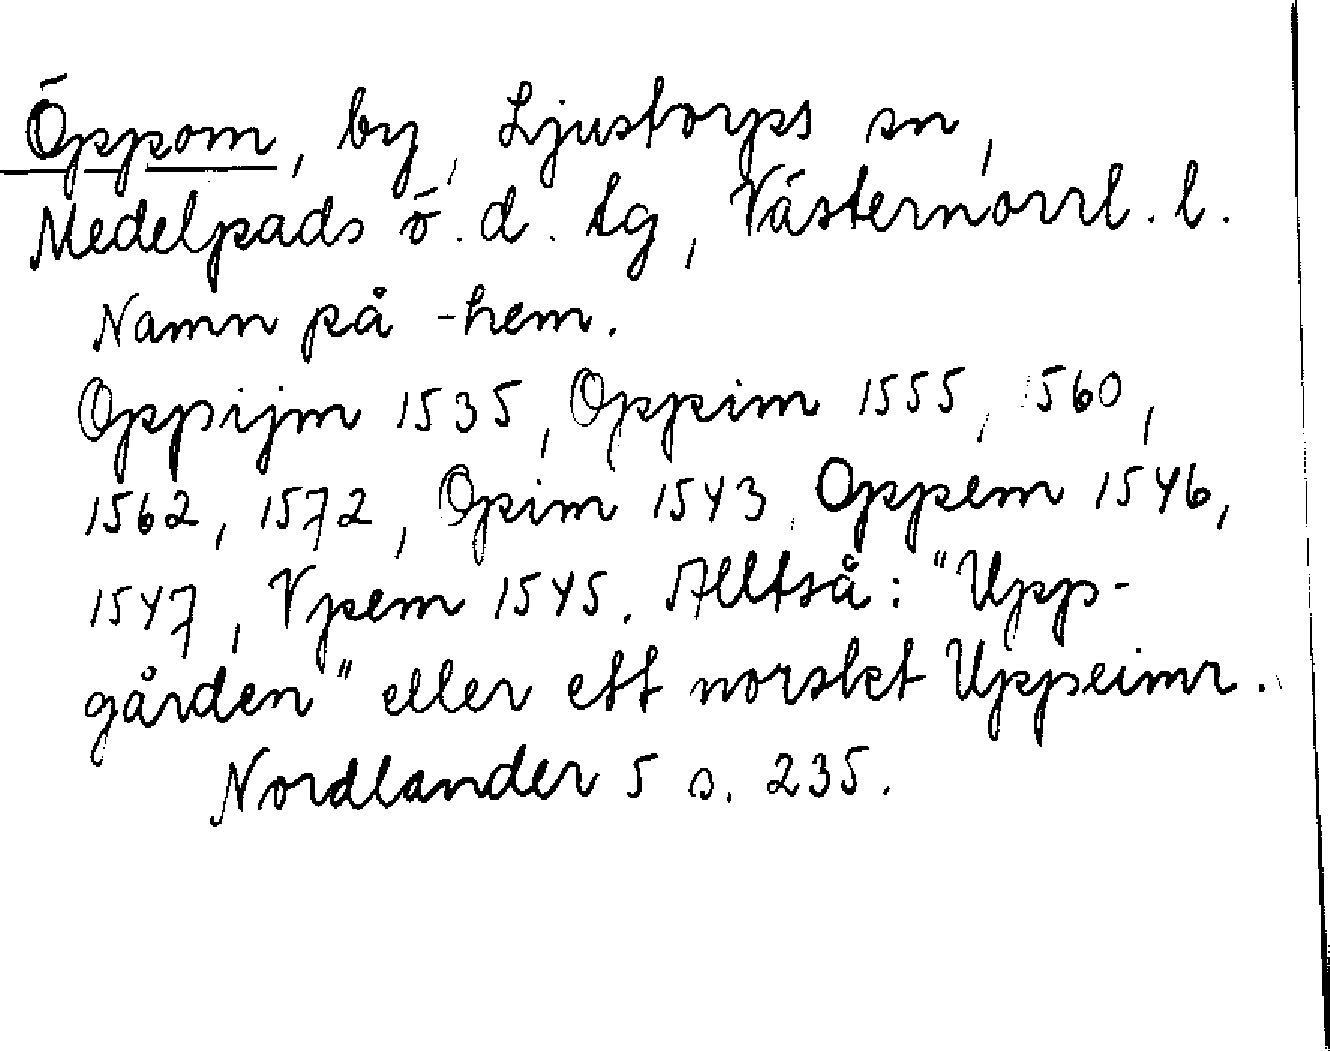 Öppom, by, Ljustorps sn,
Medelpads ö. d. tg, Västernorrl. l.
Namn på -hem.
Oppijm 1535, Oppim 1555, 1560,
1562, 1572, Opim 1543, Oppem 1546,
1547, Vpem 1545. Alltså: "Upp-
gården" eller ett norskt Uppeimr.
Nordlander 5 s. 235.